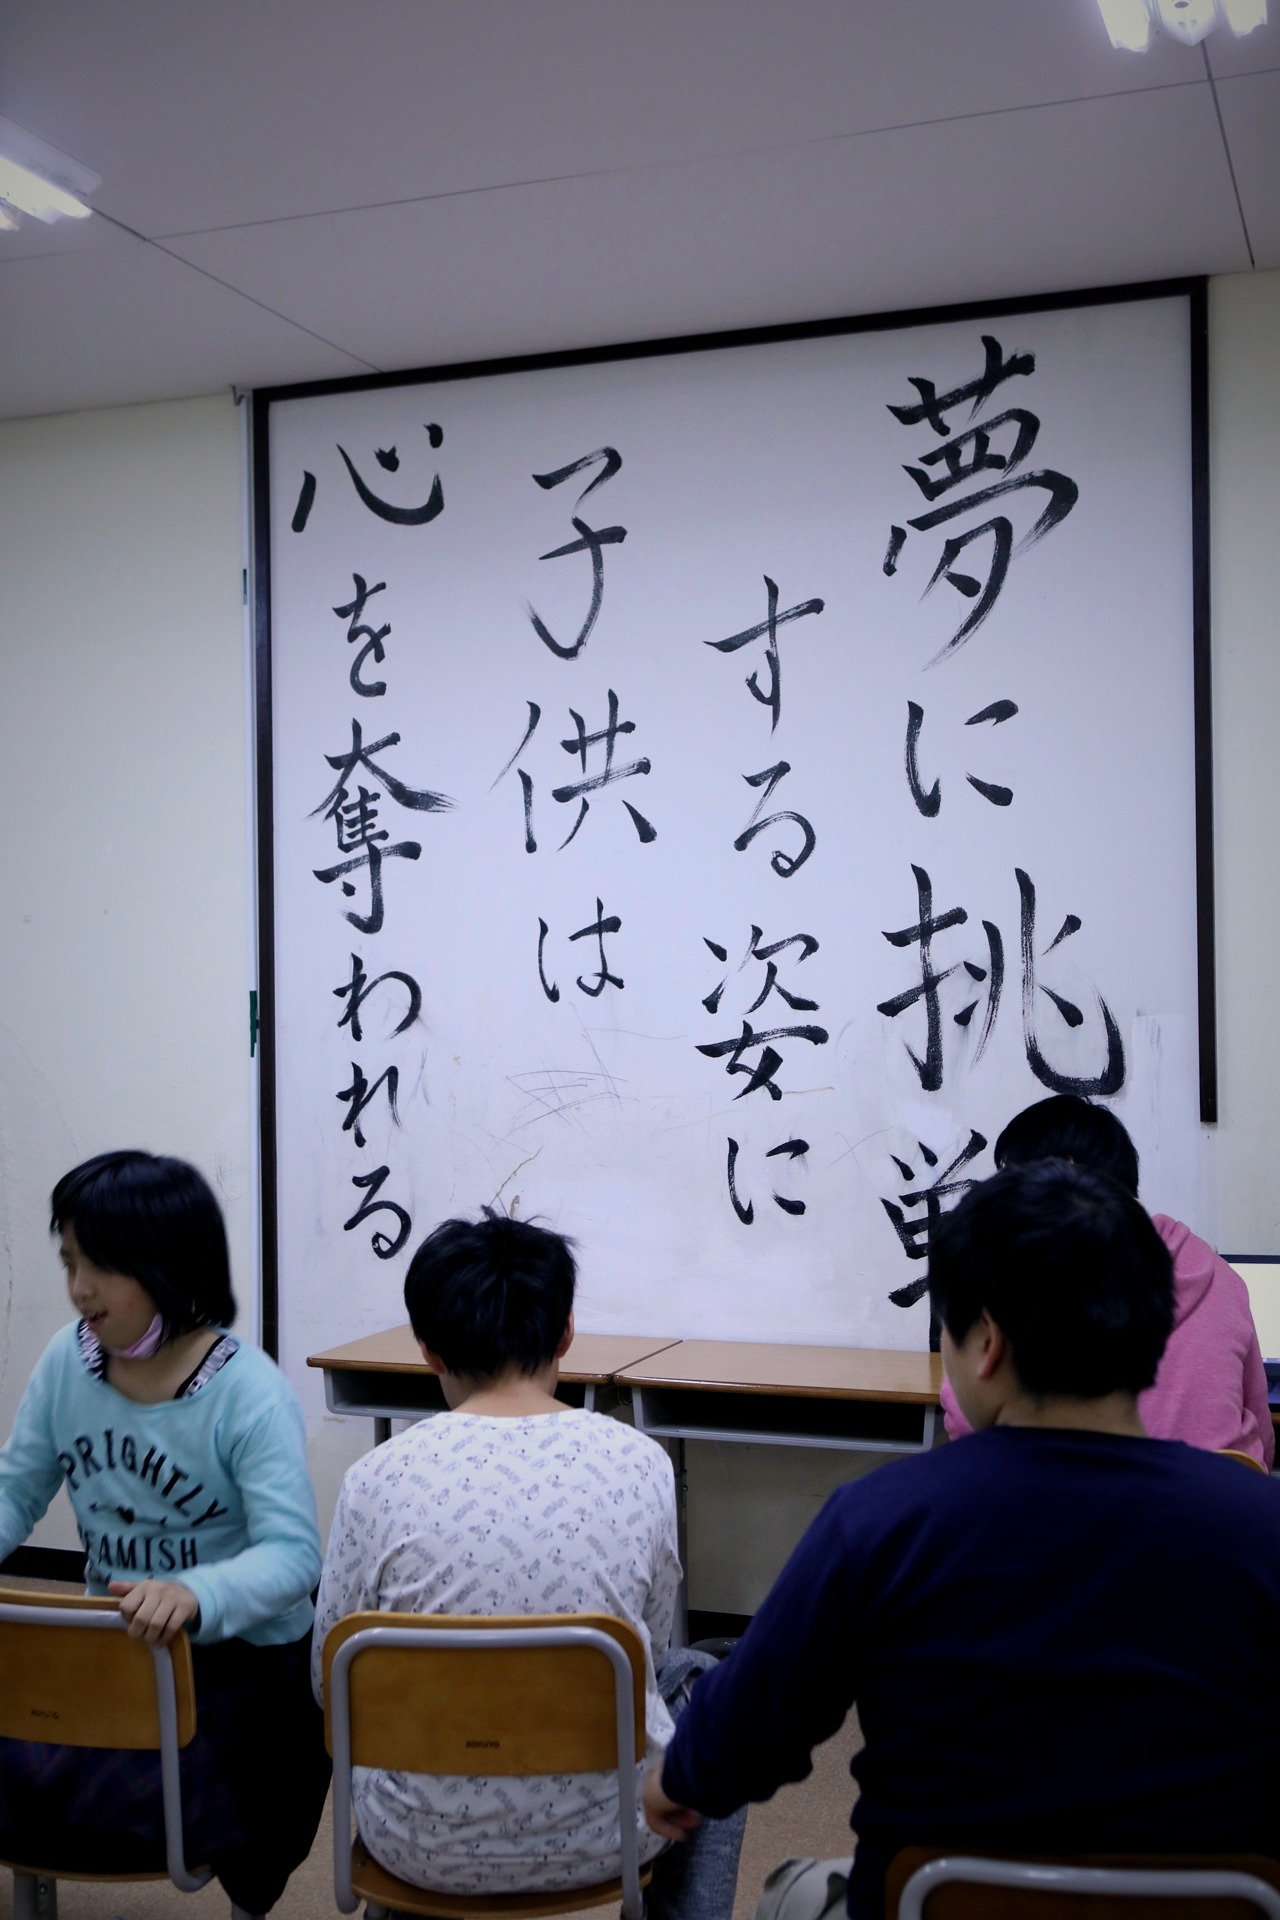 夢に挑戦
する姿に
子供は
心を奪われる
PRIGHTLY
EAMISH
KOKUYO
KOKUYO